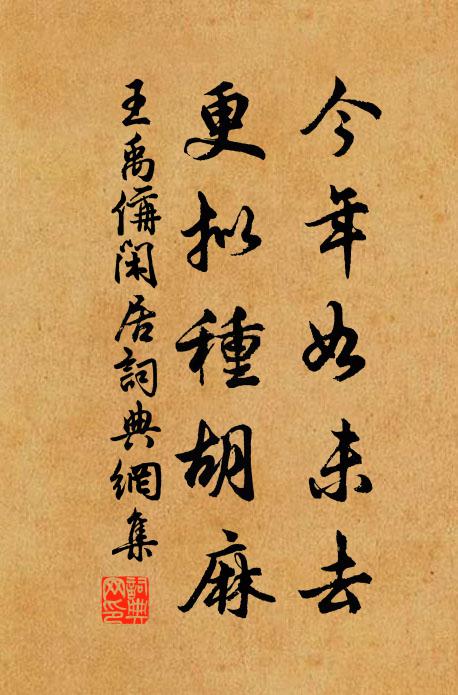 今年如未去
更拟種胡麻
王禹偁閑居詞典網集
詞典
网印